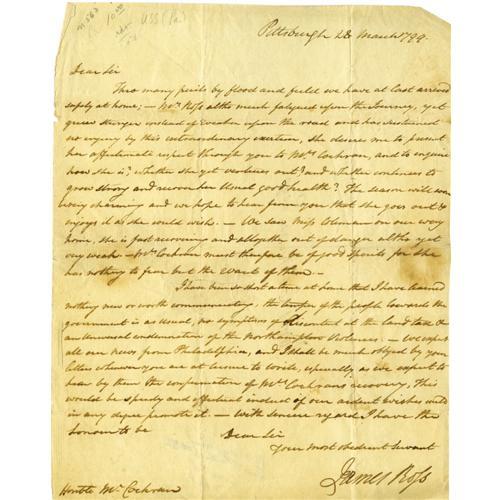 USS (Pa)
10.00
Pittsburgh 28 March 1799.
Dear Sir
Thro many perils by flood and field we have at last arrived
safely at home; — Mrs. Ross altho much fatigued upon the Journey, yet
grew stronger instead of weaker upon the road and has sustained
no injury by this extraordinary exertion, she desires me to present
her affectionate respect through you to Mrs. Cochran, and to enquire
how she is? whether she yet ventures out? and whether continues to
grow strong and recover her Usual good health? The season will soon
be very charming and we hope to hear from you that she goes out &
enjoys it as she would wish. — We saw Miss Coleman on our way
home, she is fast recovering and altogether out of danger altho yet
very weak — Mrs Cochran must therefore be of good spirits for she
has nothing to fear but the want of them. —
I have been so short a time at home that I have learned
nothing new or worth communicating, the temper of the people towards the
government is as usual, no symptoms of discontent at the land tax &
an Universal condemnation of the Northampton Violences — We expect
all our news from Philadelphia, and I shall be much obliged by your
letters whenever you are at leisure to write, especially as we expect to
hear by them the confirmation of Mrs Cochrans recovery. This
would be speedy and effectual indeed if our ardent wishes could
in any degree promote it — With sincere regard I have the
honour to be
Dear Sir
Your most obedient Servant
James Ross
Honble Mr Cochran